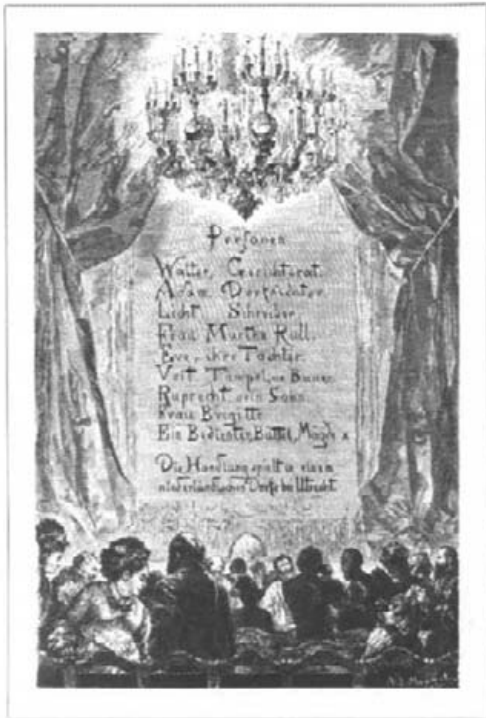 Personen
Walter, Gerichtsrat.
Adam, Dorfrichter.
Licht, Schreiber.
Frau Marthe Rull.
Eve, ihre Tochter.
Veit Tümpel, ein Bauer.
Ruprecht, sein Sohn.
Frau Brigitte
Ein Bedienter, Büttel, Mägde
Die Handlung spielt in einem
niederländischen Dorfe bei Utrecht